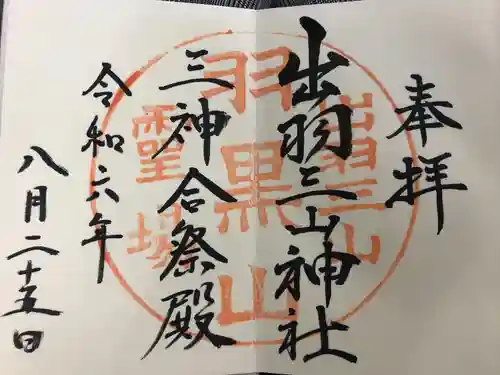 奉拝
出羽三山神社
三神合祭殿
令和六年
八月二十五日
出羽三山
羽黒山
霊場